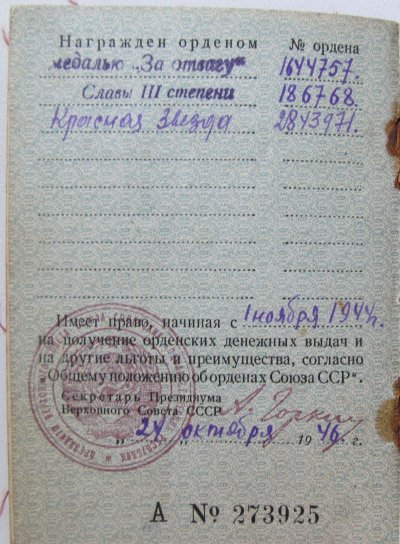 Награжден орденом № ордена
медалью „За отвагу“ 1644757.
Славы III степени 186768.
Красная Звезда 2843971.
Имеет право, начиная с 1 ноября 1944г.
на получение орденских денежных выдач и
на другие льготы и преимущества, согласно
„Общему положению об орденах Союза ССР“.
Секретарь Президиума
Верховного Совета СССР А. Горкин
„24 октября 1946 г.
А № 273925